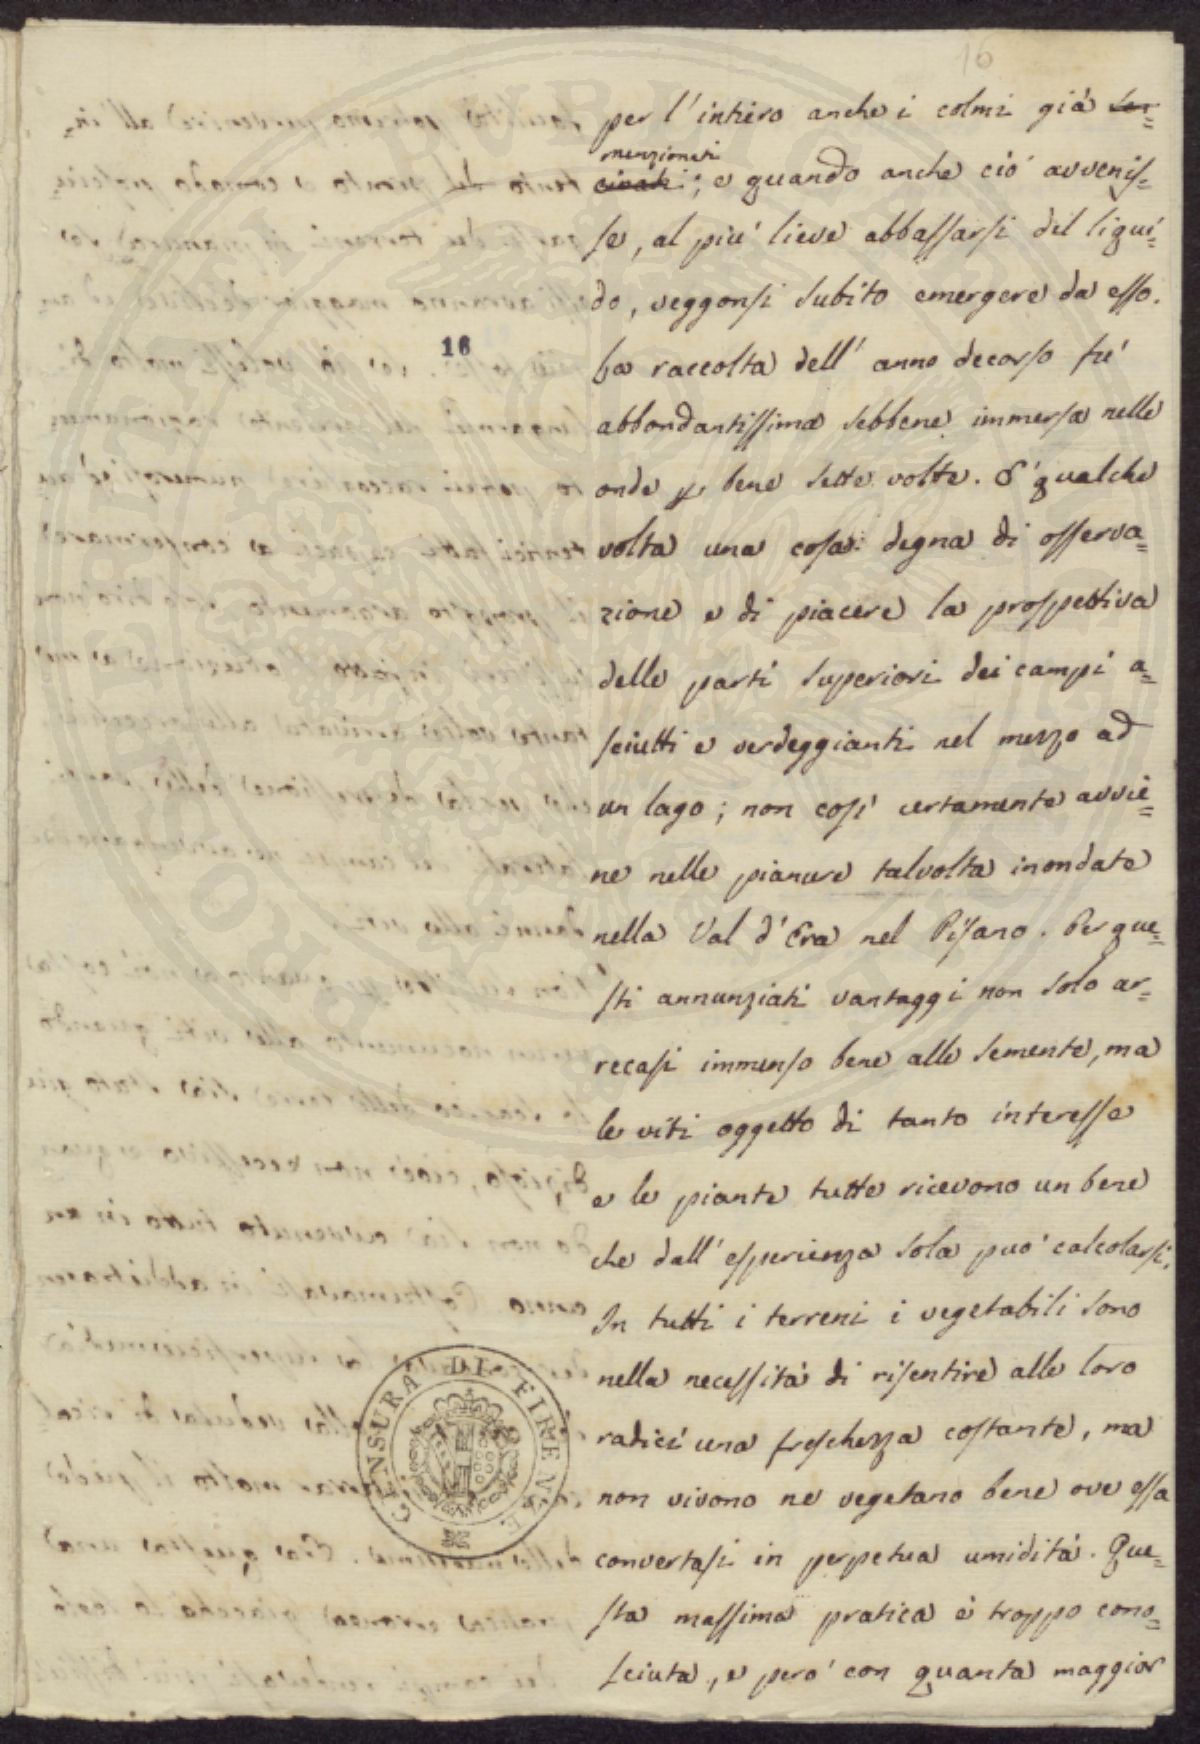 16
per l'intiero anche i colmi già
menzionati
; e quando anche ciò avvenis=
se, al più lieve abbassarsi del liqui=
do, veggonsi subito emergere da esso.
La raccolta dell' anno decorso fù
abbondantissima sebbene immersa nelle
onde p bene sette volte. E' qualche
volta una cosa degna di osserva=
zione e di piacere la prospettiva
delle parti superiori dei campi a=
sciutti e verdeggianti nel mezzo ad
un lago; non così certamente avvie=
ne nelle pianure talvolta inondate
nella Val d'Era nel Pisano. Per que=
sti annunziati vantaggi non solo ar=
recasi immenso bene alle semente, ma
le viti oggetto di tanto interesse
e le piante tutte ricevono un bene
che dall' esperienza sola può calcolarsi.
In tutti i terreni i vegetabili sono
nella necessità di risentire alle loro
radici una freschezza costante, ma
non vivono ne vegetano bene ove essa
convertasi in perpetua umidità. Que=
sta massima pratica è troppo cono=
sciuta, e però con quanta maggior
16
CENSURA DI FIRENZE